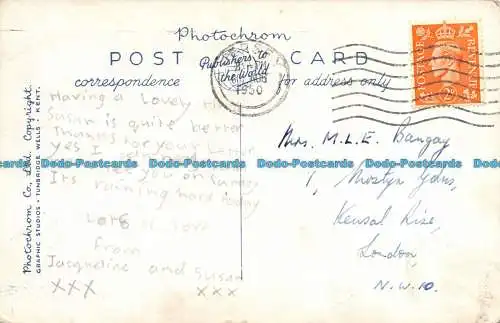 Photochrom
POST CARD
Publishers to
the World
correspondence for address only
1950
POSTAGE REVENUE
Having a Lovely
Susan is quite better
Thanks for your Letter
yes I
you on Sunday
Its raining hard today
Lots
From
Jacqueline and Susan
xxx xxx
Mrs. M. L. E. Bangay
1, Mostyn Gdns,
Kensal Rise,
London
N.W.10.
Photochrom Co., Ltd. Copyright.
GRAPHIC STUDIOS • TUNBRIDGE WELLS • KENT.
Dodo-Postcards Dodo-Postcards Dodo-Postcards Dodo-Postcards